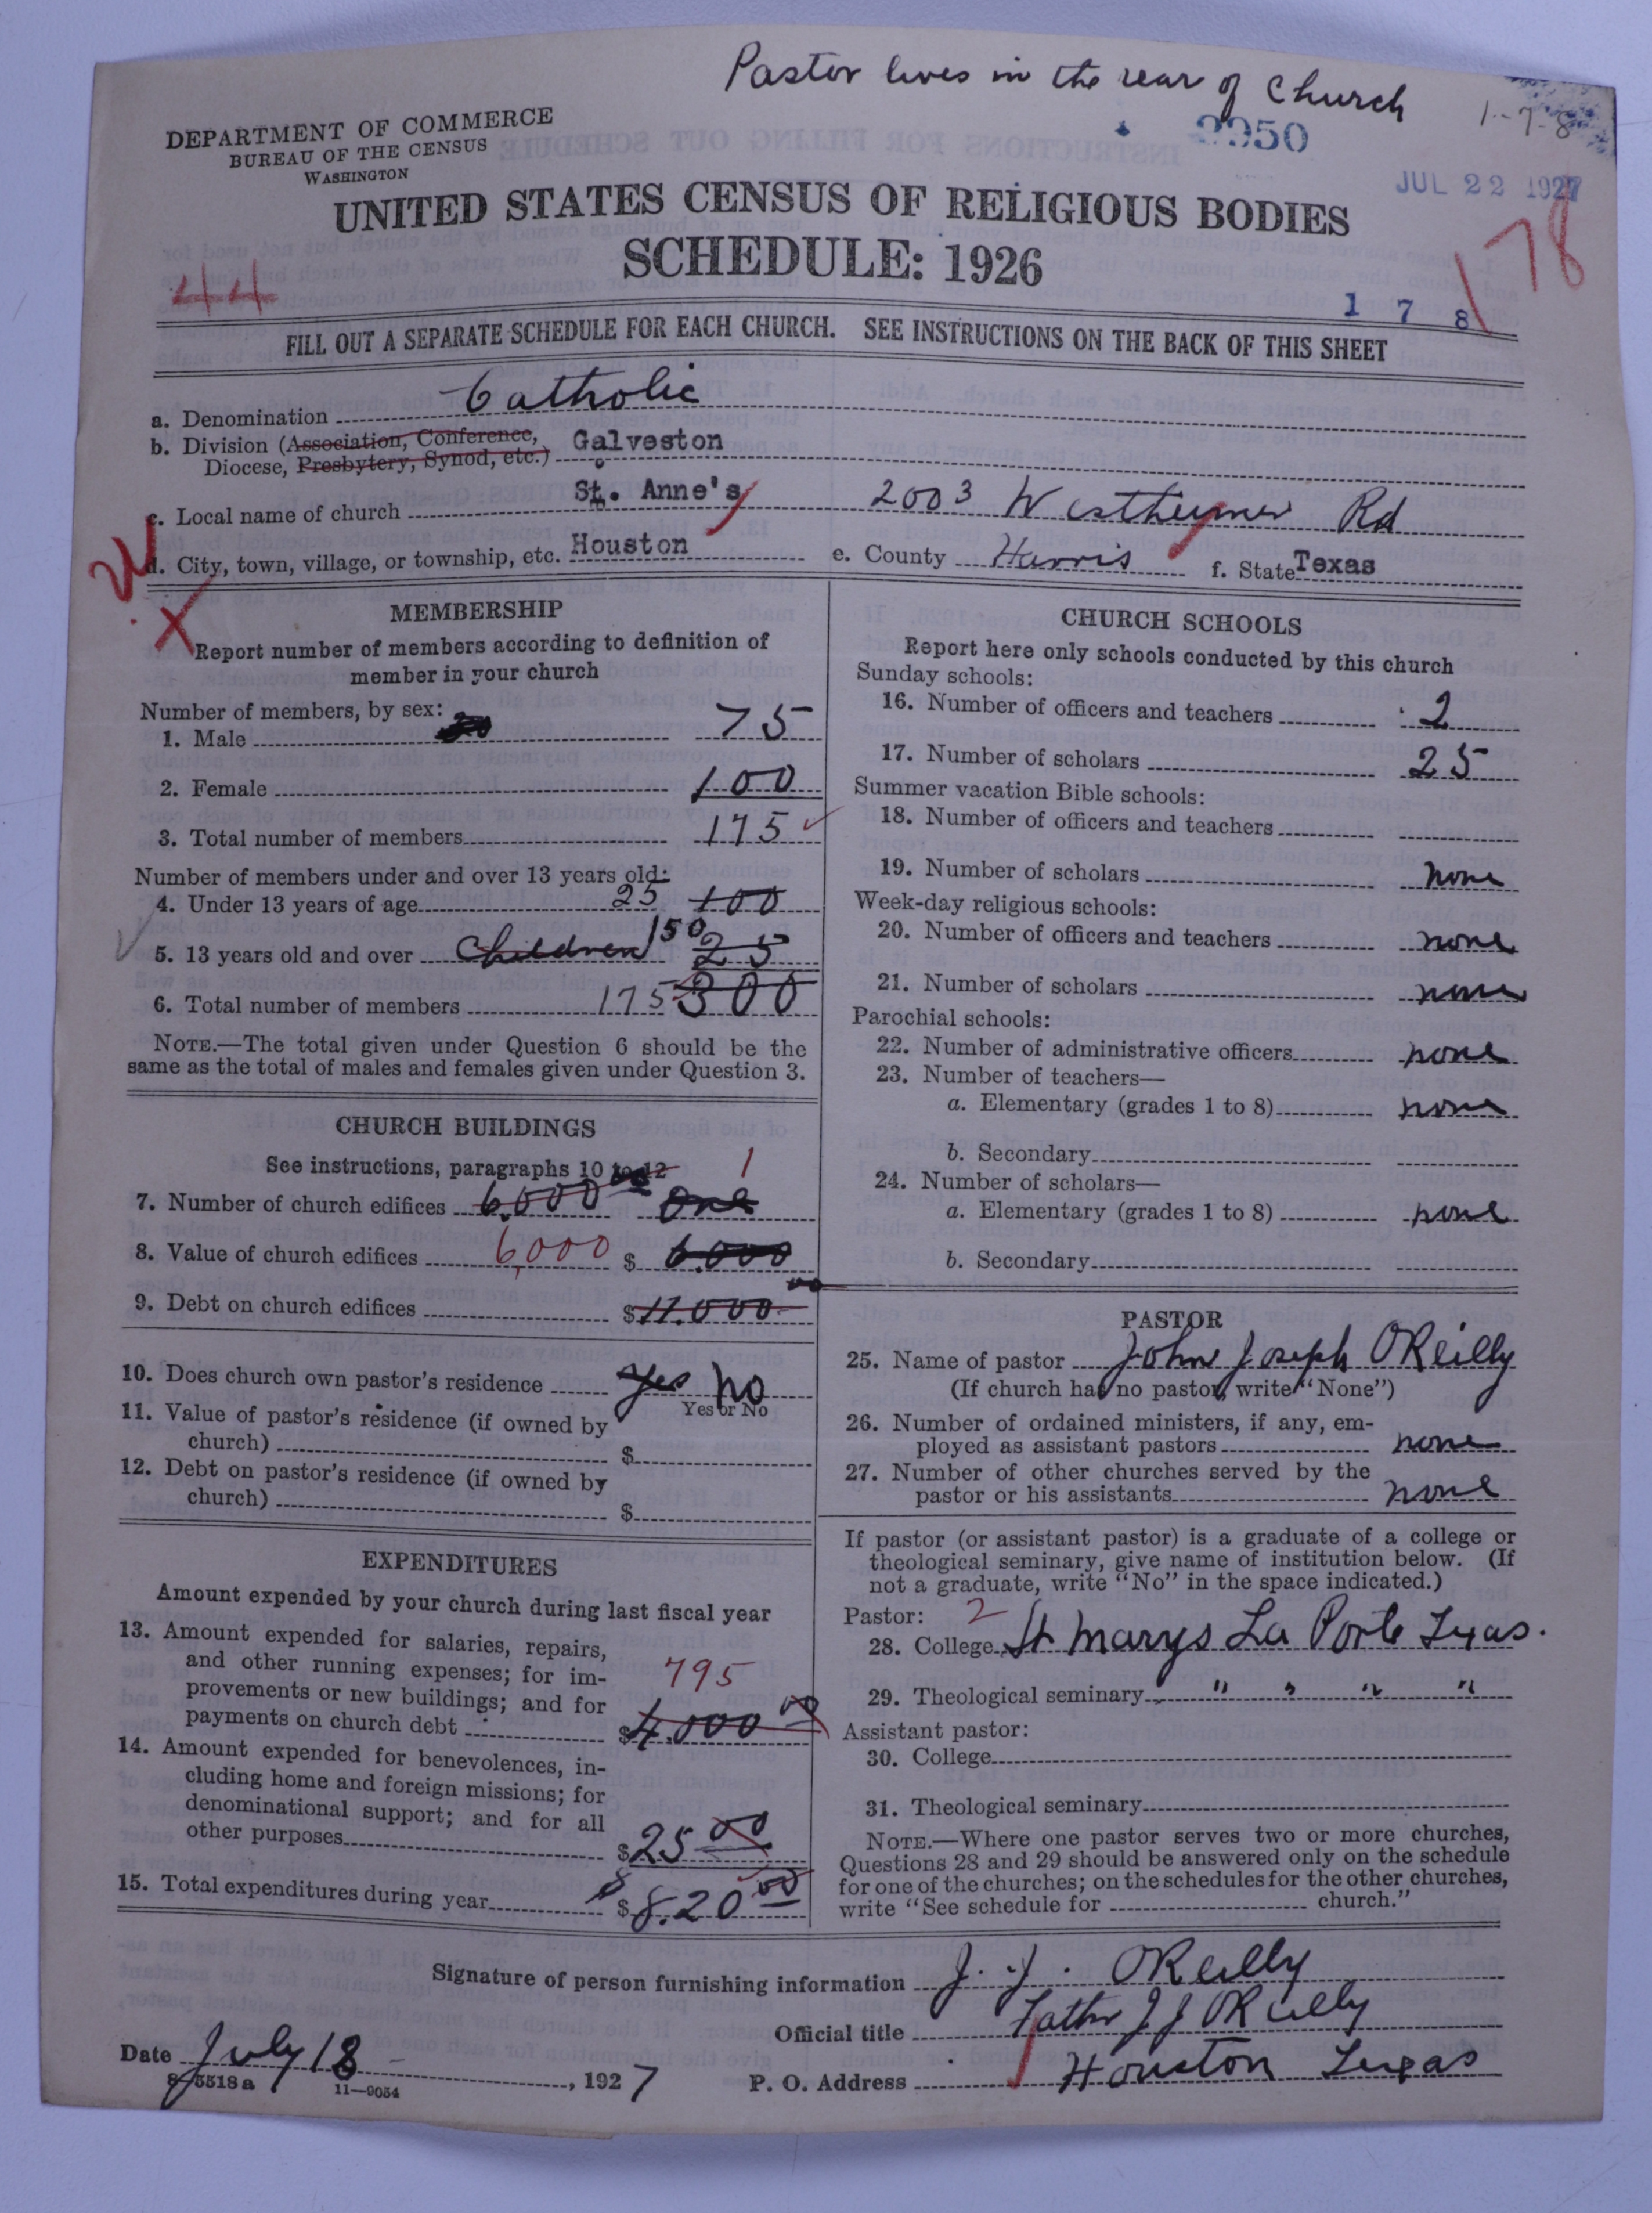 Pastor lives in the rear of Church
1-7-8
DEPARTMENT OF COMMERCE
BUREAU OF THE CENSUS
WASHINGTON
2950
JUL 22 1927
UNITED STATES CENSUS OF RELIGIOUS BODIES
SCHEDULE: 1926
44
178
1 7 8
FILL OUT A SEPARATE SCHEDULE FOR EACH CHURCH. SEE INSTRUCTIONS ON THE BACK OF THIS SHEET
a. Denomination Catholic
b. Division (Association, Conference,
Diocese, Presbytery, Synod, etc.) Galveston
c. Local name of church St. Anne's 2003 Westheimer Rd
d. City, town, village, or township, etc. Houston e. County Harris f. State Texas
MEMBERSHIP
Report number of members according to definition of
member in your church
Number of members, by sex:
1. Male 75
2. Female 100
3. Total number of members 175
Number of members under and over 13 years old:
4. Under 13 years of age 25 100
5. 13 years old and over Children 150 25
6. Total number of members 175 300
NOTE.—The total given under Question 6 should be the
same as the total of males and females given under Question 3.
CHURCH BUILDINGS
See instructions, paragraphs 10 to 12
1
7. Number of church edifices 6,000 One
8. Value of church edifices 6,000 $ 6.000
9. Debt on church edifices $ 11.000
10. Does church own pastor's residence Yes No
Yes or No
11. Value of pastor's residence (if owned by
church) $
12. Debt on pastor's residence (if owned by
church) $
EXPENDITURES
Amount expended by your church during last fiscal year
13. Amount expended for salaries, repairs,
and other running expenses; for im-
provements or new buildings; and for
payments on church debt 795 $ 4.000 00
14. Amount expended for benevolences, in-
cluding home and foreign missions; for
denominational support; and for all
other purposes $ 25 00
15. Total expenditures during year $ 8.20 00
CHURCH SCHOOLS
Report here only schools conducted by this church
Sunday schools:
16. Number of officers and teachers 2
17. Number of scholars 25
Summer vacation Bible schools:
18. Number of officers and teachers
19. Number of scholars none
Week-day religious schools:
20. Number of officers and teachers none
21. Number of scholars none
Parochial schools:
22. Number of administrative officers none
23. Number of teachers—
a. Elementary (grades 1 to 8) none
b. Secondary
24. Number of scholars—
a. Elementary (grades 1 to 8) none
b. Secondary
PASTOR
25. Name of pastor John Joseph OReilly
(If church has no pastor, write "None")
26. Number of ordained ministers, if any, em-
ployed as assistant pastors none
27. Number of other churches served by the
pastor or his assistants none
If pastor (or assistant pastor) is a graduate of a college or
theological seminary, give name of institution below. (If
not a graduate, write "No" in the space indicated.)
Pastor: 2
28. College St Marys La Porte Texas.
29. Theological seminary " " " "
Assistant pastor:
30. College
31. Theological seminary
NOTE.—Where one pastor serves two or more churches,
Questions 28 and 29 should be answered only on the schedule
for one of the churches; on the schedules for the other churches,
write "See schedule for church."
Signature of person furnishing information J. J. OReilly
Official title Father J J OReilly
Date July 18, 1927
P. O. Address Houston Texas
8-5518a 11—9054